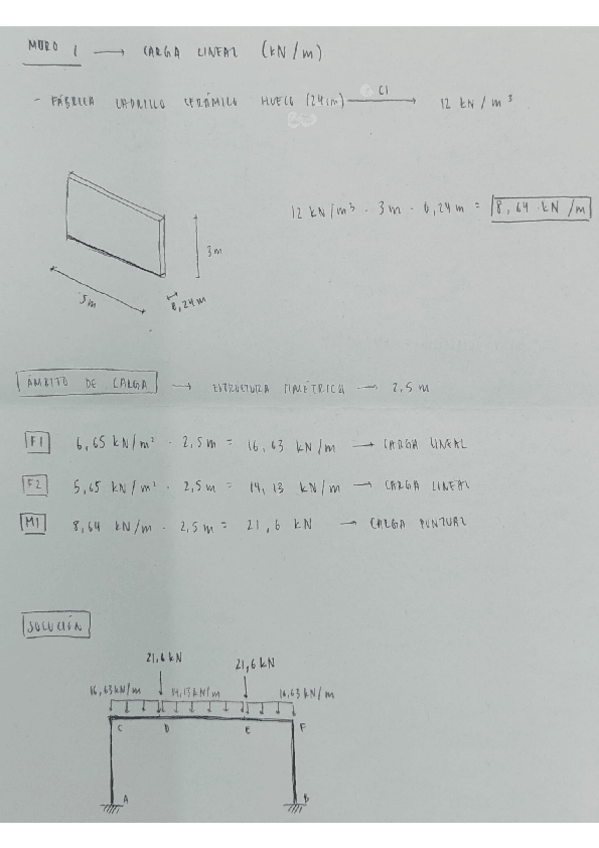 MURO 1 → CARGA LINEAL (KN/m)
- FÁBRICA LADRILLO CERÁMICO HUECO (24cm) → C1 12 KN/m³
12 KN/m³ · 3m · 0,24m = 8,64 KN/m
3m
5m
0,24m
ÁMBITO DE CARGA → ESTRUCTURA SIMÉTRICA → 2.5m
F1 6,65 KN/m² · 2,5m = 16,63 KN/m → CARGA LINEAL
F2 5,65 KN/m² · 2,5m = 14,13 KN/m → CARGA LINEAL
M1 8,64 KN/m · 2,5m = 21,6 KN → CARGA PUNTUAL
SOLUCIÓN
21,6 KN 21,6 KN
16,63KN/m 14,13KN/m 16,63 KN/m
C D E F
A B